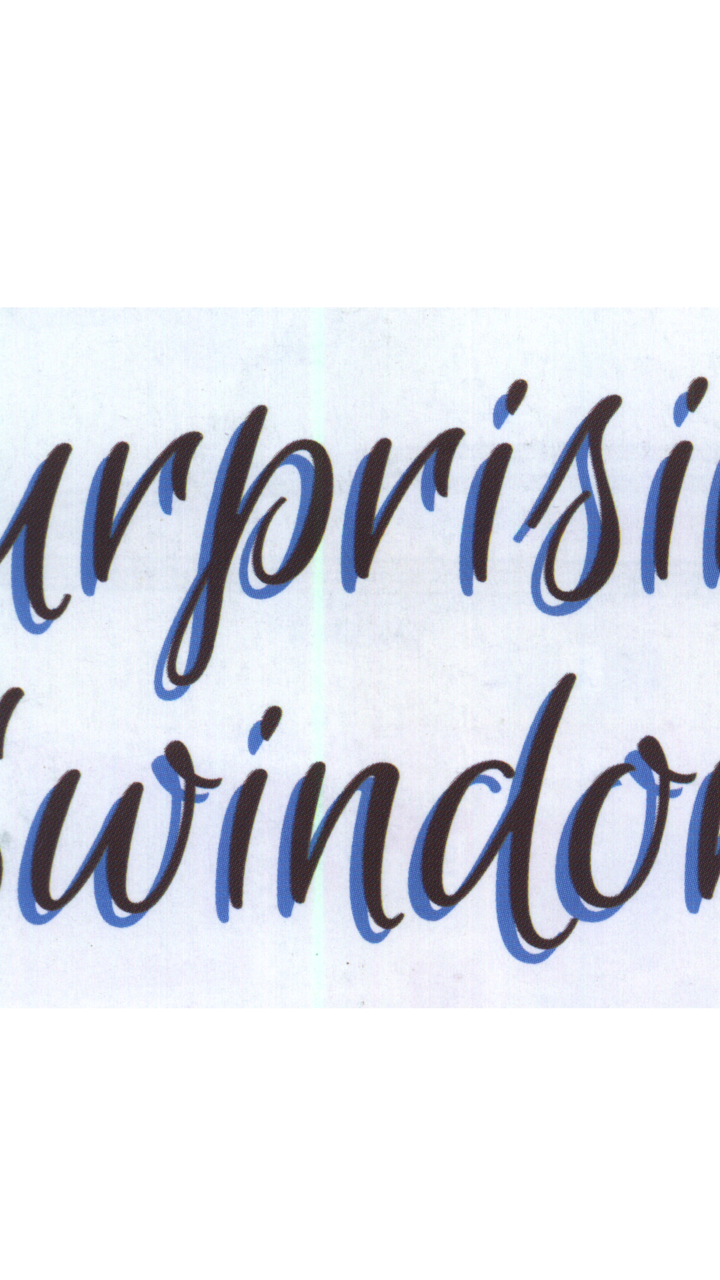 urprisin
Swindon